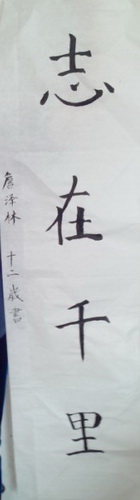 志在千里
詹泽林 十二歲書